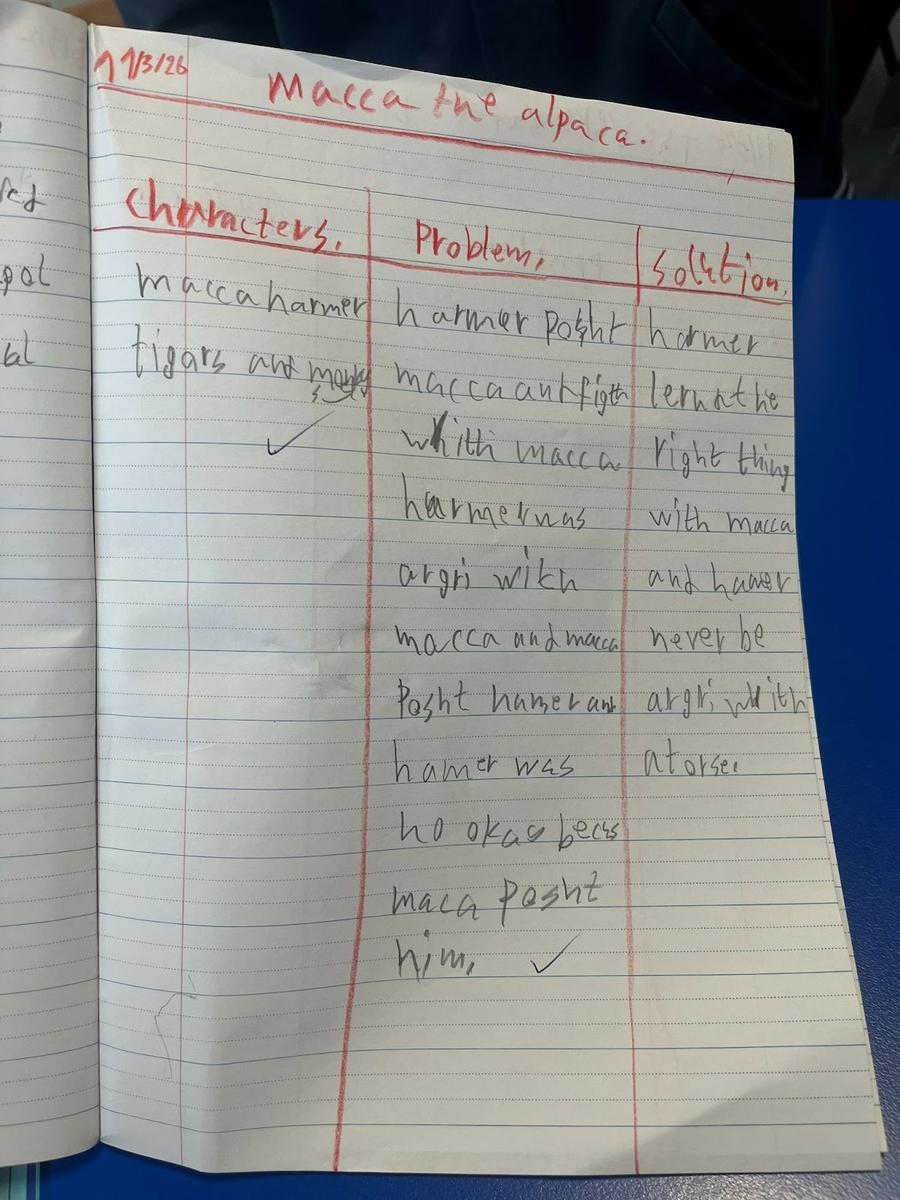 11/3/26
Macca the alpaca.
Characters.
macca harmer
tigars and
Problem.
harmer posht
macca ant figth
whitti macca
harmer was
argri with
macca and macca
Posht hamer ant
hamer was
no okao becus
maca posht
him.
solution.
harmer
lernt the
right thing
with macca
and hamer
never be
argri whith
atorse.
ed
pol
al